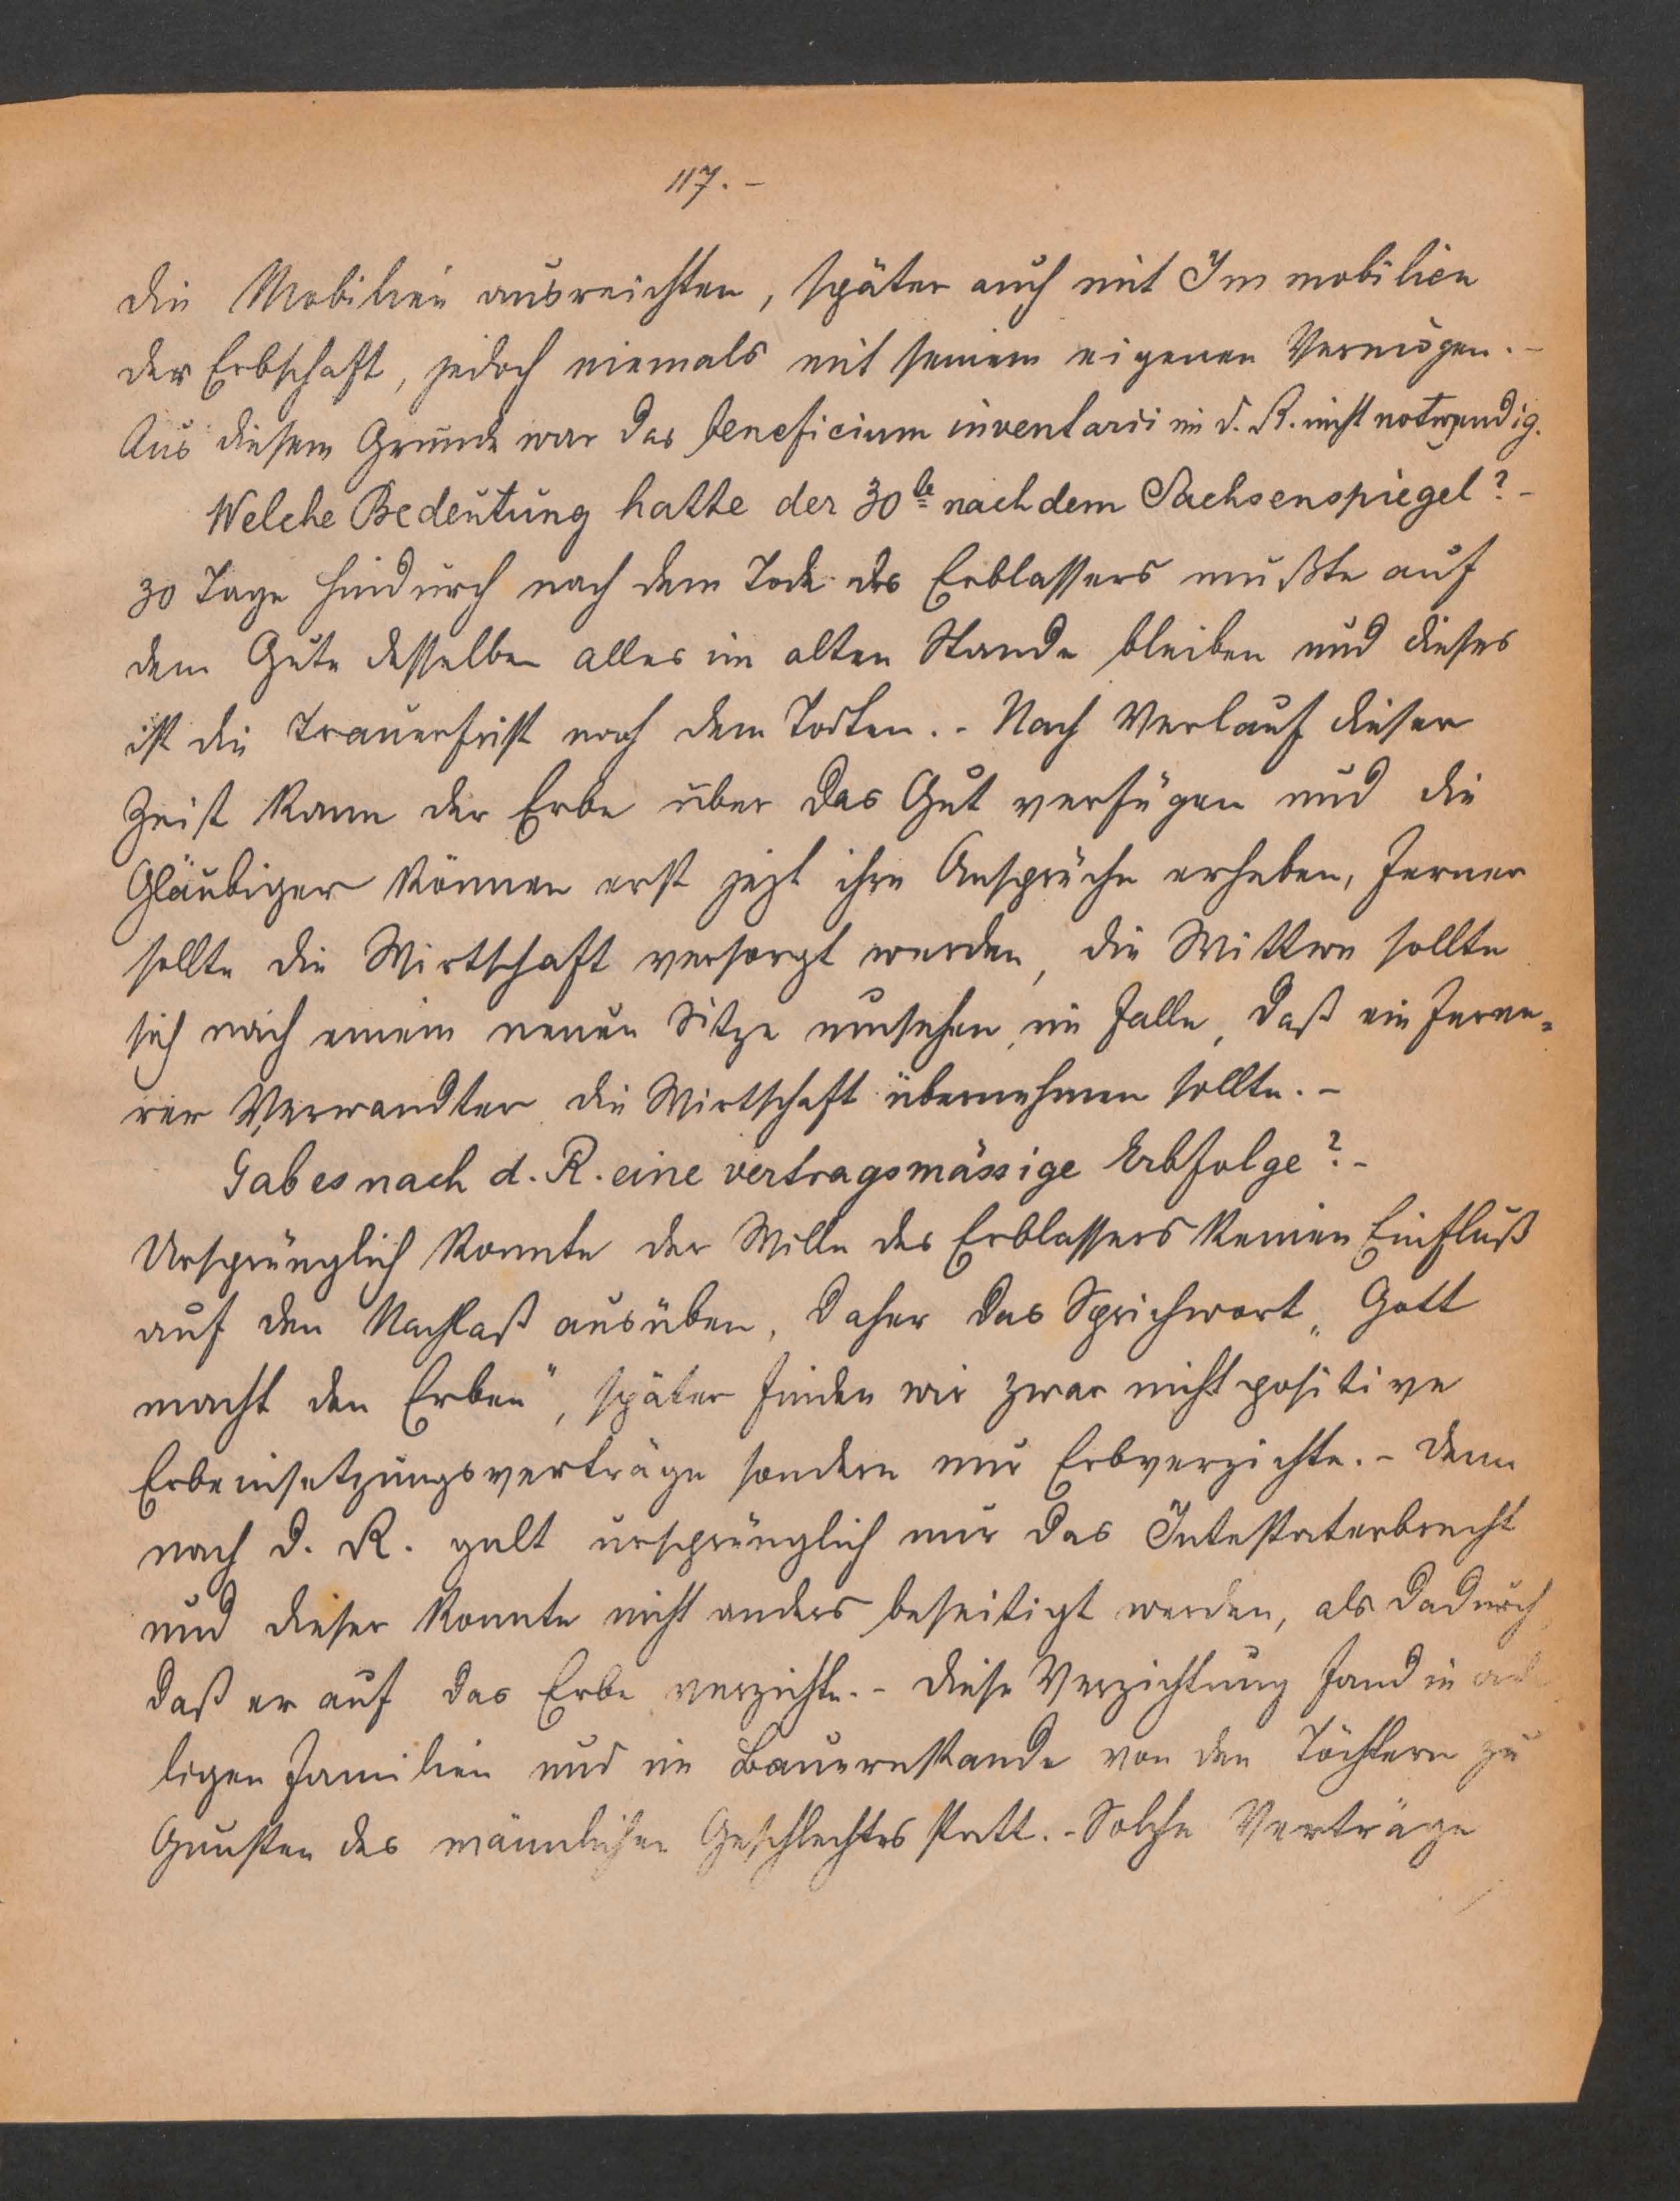 117.-
die Mobilien ausreichten, später auch mit Immobilien
der Erbschaft, jedoch niemals mit seinem eigenen Vermögen.-
Aus diesem Grunde war das beneficium inventarii im d. R. nicht notwendig.
Welche Bedeutung hatte der 30te nach dem Sachsenspiegel?-
30 Tage hindurch nach dem Tode des Erblassers mußte auf
dem Gute desselben alles im alten Stande bleiben und dieses
ist die Trauerfrist nach dem Todten.- Nach Verlauf dieser
Zeist kann der Erbe über das Gut verfügen und die
Gläubiger können erst jezt ihre Ansprüche erheben, ferner
sollte die Wirtschaft versorgt werden, die Wittwe sollte
sich nach einem neuen Sitze umsehen, im Falle, daß ein ferne=
rer Verwandter die Wirtschaft übernehmen sollte.-
Gab es nach d. R. eine vertragsmässige Erbfolge?-
Ursprünglich konnte der Wille des Erblassers keinen Einfluß
auf den Nachlaß ausüben, daher das Sprichwort „Gott
macht den Erben", später finden wir zwar nicht positive
Erbeinsetzungsverträge sondern nur Erbverzichte.- Denn
nach d. R. galt ursprünglich nur das Intestaterbrecht
und dieser konnte nicht anders beseitigt werden, als dadurch,
daß er auf das Erbe verzichte.- Diese Verzichtung fand in ad
ligen Familien und im Bauernstande von den Töchtern zu
Gunsten des männlichen Geschlechtes statt.- Solche Verträge